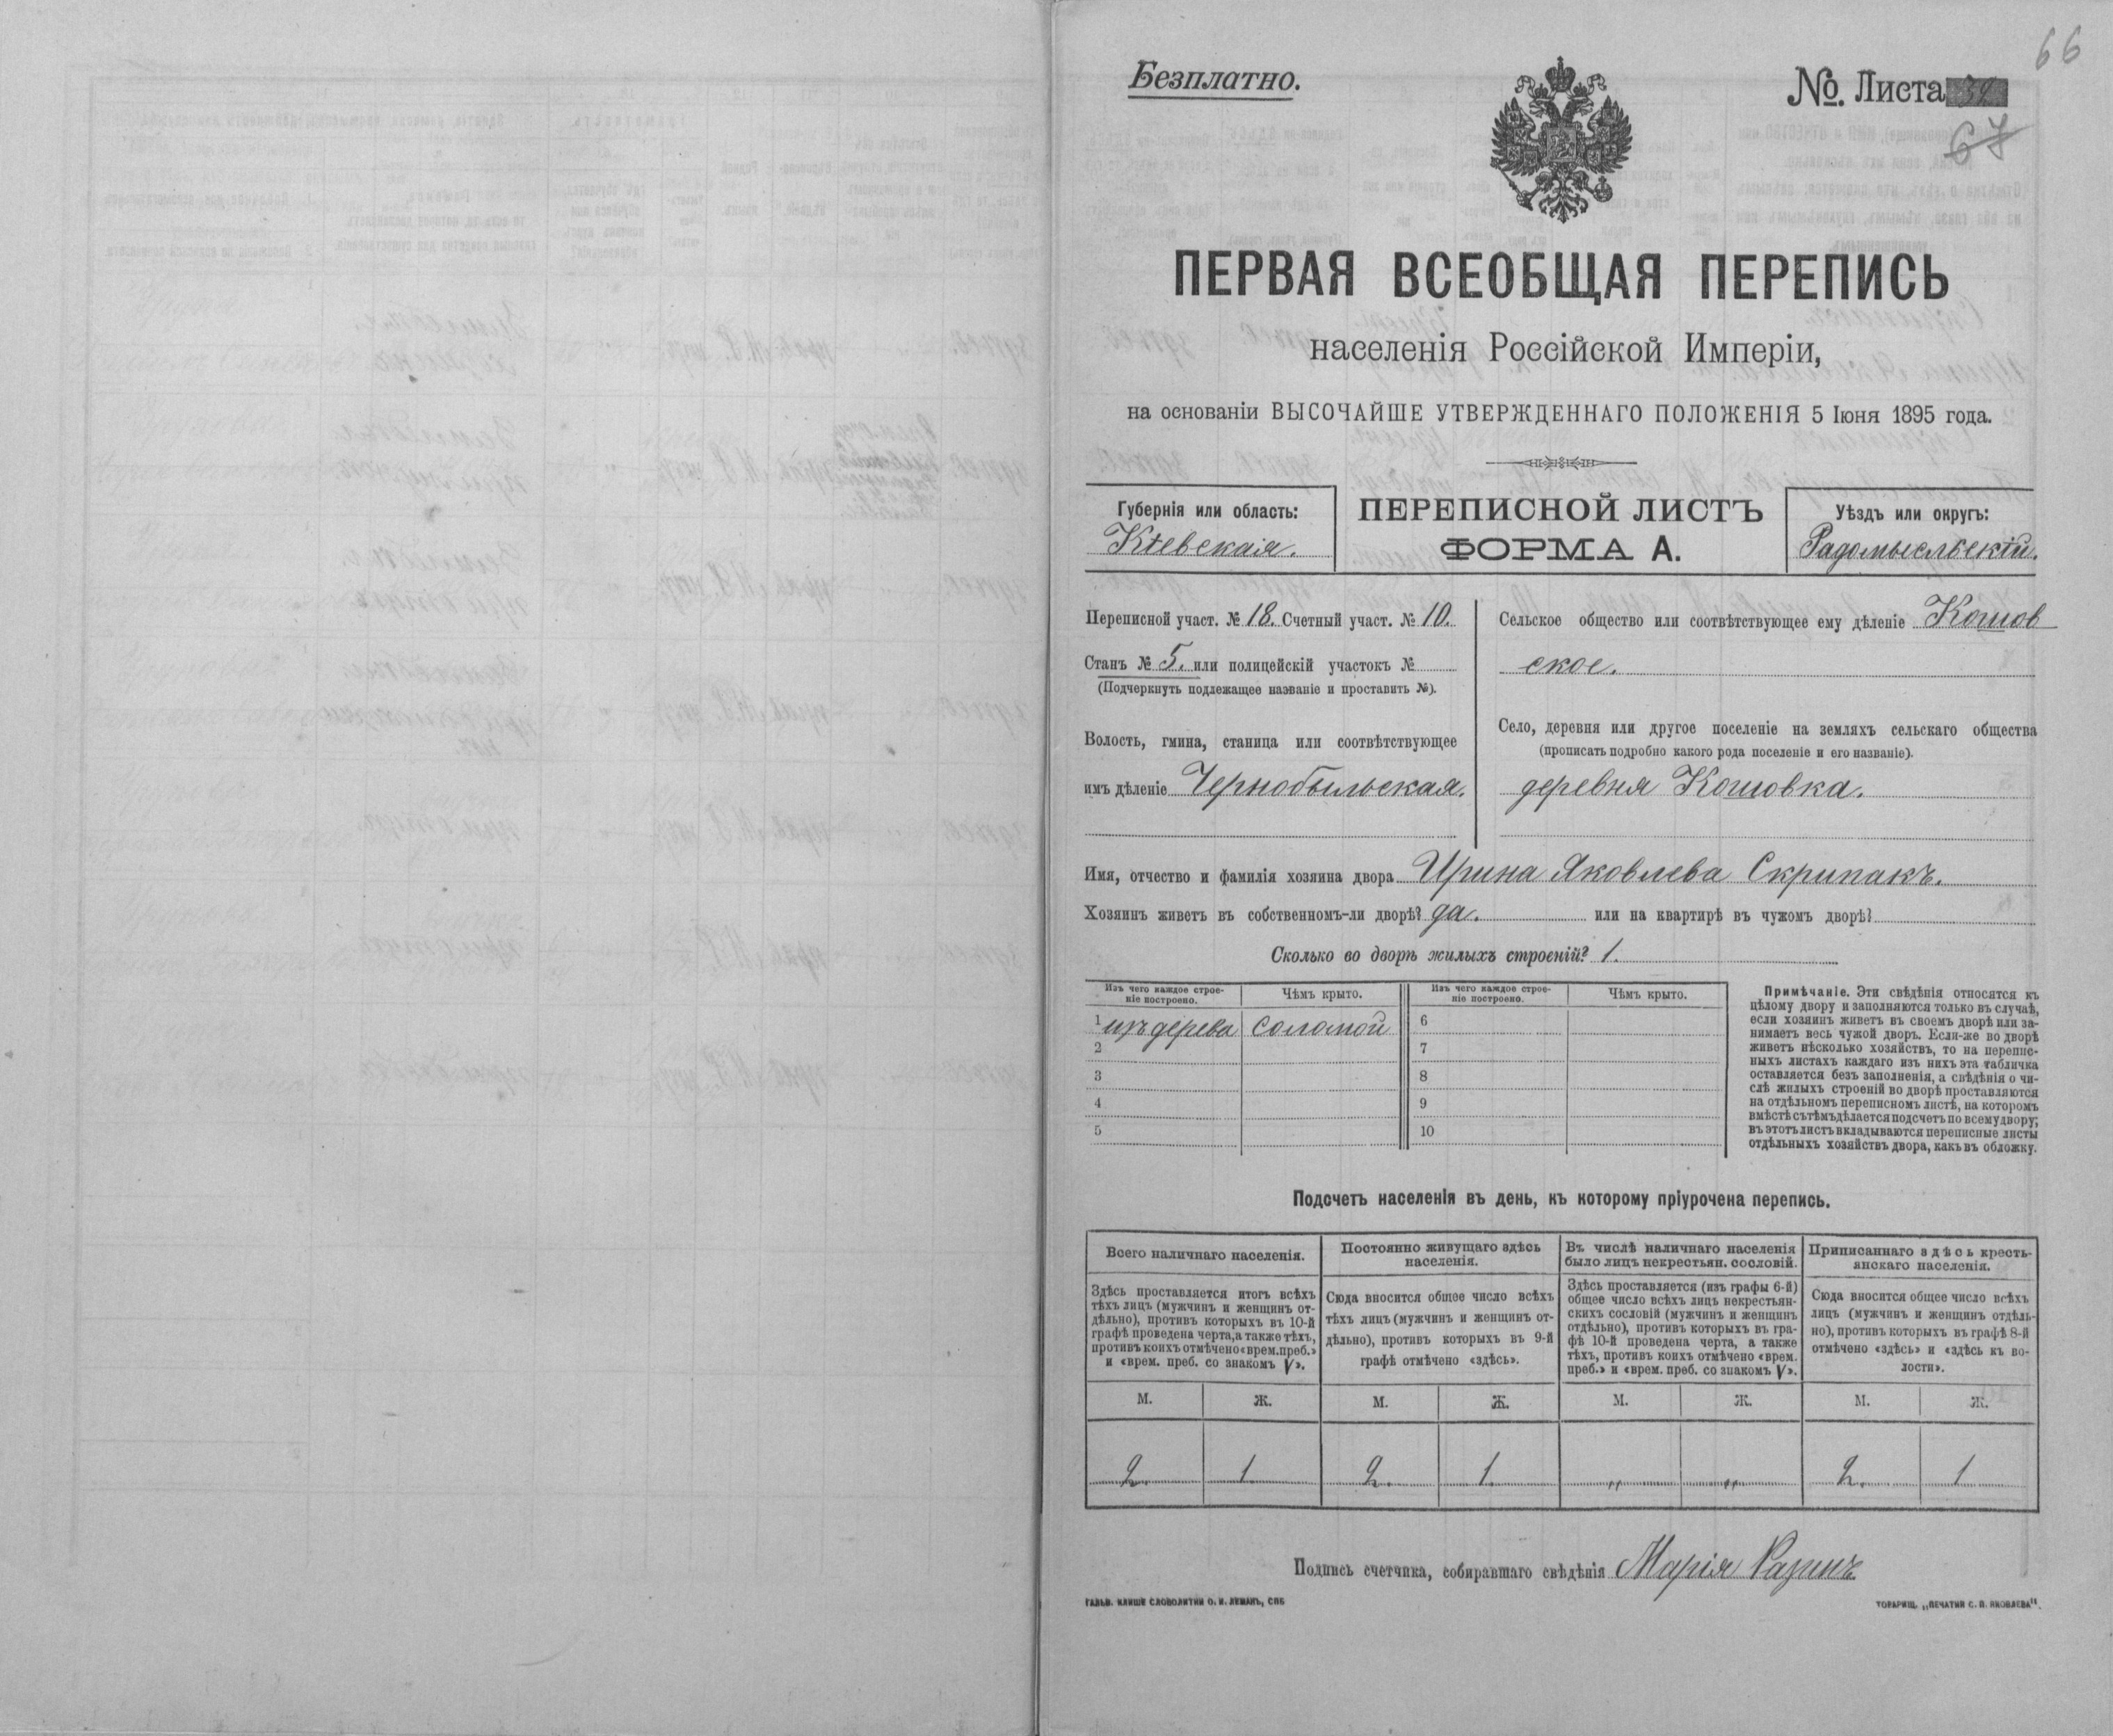 66
Безплатно.
№. Листа 34
67
ПЕРВАЯ ВСЕОБЩАЯ ПЕРЕПИСЬ
населенія Россійской Имперіи,
на основаніи ВЫСОЧАЙШЕ УТВЕРЖДЕННАГО ПОЛОЖЕНІЯ 5 Іюня 1895 года.
Губернія или область:
Кіевская.
ПЕРЕПИСНОЙ ЛИСТЪ
ФОРМА А.
Уѣздъ или округъ:
Радомысльскій.
Переписной участ. № 18. Счетный участ. № 10.
Станъ № 5. или полицейскій участокъ №
(Подчеркнуть подлежащее названіе и проставить №).
Волость, гмина, станица или соотвѣтствующее
имъ дѣленіе Чернобыльская.
Сельское общество или соотвѣтствующее ему дѣленіе Кошов
ское.
Село, деревня или другое поселеніе на земляхъ сельскаго общества
(прописать подробно какого рода поселеніе и его названіе).
деревня Кошовка.
Имя, отчество и фамилія хозяина двора Ирина Яковлева Скрипакъ.
Хозяинъ живетъ въ собственномъ-ли дворѣ? да. или на квартирѣ въ чужомъ дворѣ?
Сколько во дворѣ жилыхъ строеній? 1.
Изъ чего каждое строе-
ніе построено.
Чѣмъ крыто.
Изъ чего каждое строе-
ніе построено.
Чѣмъ крыто.
1 изъ дерева соломой 6
2 7
3 8
4 9
5 10
Примѣчаніе. Эти свѣдѣнія относятся къ
цѣлому двору и заполняются только въ случаѣ,
если хозяинъ живетъ въ своемъ дворѣ или за-
нимаетъ весь чужой дворъ. Если-же во дворѣ
живетъ нѣсколько хозяйствъ, то на перепис-
ныхъ листахъ каждаго изъ нихъ эта табличка
оставляется безъ заполненія, а свѣдѣнія о чи-
слѣ жилыхъ строеній во дворѣ проставляются
на отдѣльномъ переписномъ листѣ, на которомъ
вмѣстѣ съ тѣмъ дѣлается подсчетъ по всему двору;
въ этотъ листъ вкладываются переписные листы
отдѣльныхъ хозяйствъ двора, какъ въ обложку.
Подсчетъ населенія въ день, къ которому пріурочена перепись.
Всего наличнаго населенія.
Здѣсь проставляется итогъ всѣхъ
тѣхъ лицъ (мужчинъ и женщинъ от-
дѣльно), противъ которыхъ въ 10-й
графѣ проведена черта, а также тѣхъ,
противъ коихъ отмѣчено «врем. преб.»
и «врем. преб. со знакомъ V».
Постоянно живущаго здѣсь
населенія.
Сюда вносится общее число всѣхъ
тѣхъ лицъ (мужчинъ и женщинъ от-
дѣльно), противъ которыхъ въ 9-й
графѣ отмѣчено «здѣсь».
Въ числѣ наличнаго населенія
было лицъ некрестьян. сословій.
Здѣсь проставляется (изъ графы 6-й)
общее число всѣхъ лицъ некрестьян-
скихъ сословій (мужчинъ и женщинъ
отдѣльно), противъ которыхъ въ гра-
фѣ 10-й проведена черта, а также
тѣхъ, противъ коихъ отмѣчено «врем.
преб.» и «врем. преб. со знакомъ V».
Приписаннаго здѣсь кресть-
янскаго населенія.
Сюда вносится общее число всѣхъ
лицъ (мужчинъ и женщинъ отдѣль-
но), противъ которыхъ въ графѣ 8-й
отмѣчено «здѣсь» и «здѣсь къ во-
лости».
М. Ж. М. Ж. М. Ж. М. Ж.
2. 1 2. 1 „ „ 2. 1
Подпись счетчика, собиравшаго свѣдѣнія Марія Разинъ
ГАЛЬВ. КЛИШЕ СЛОВОЛИТНИ О. И. ЛЕМАНЪ, СПБ
ТОВАРИЩ. „ПЕЧАТНЯ С. П. ЯКОВЛЕВА".